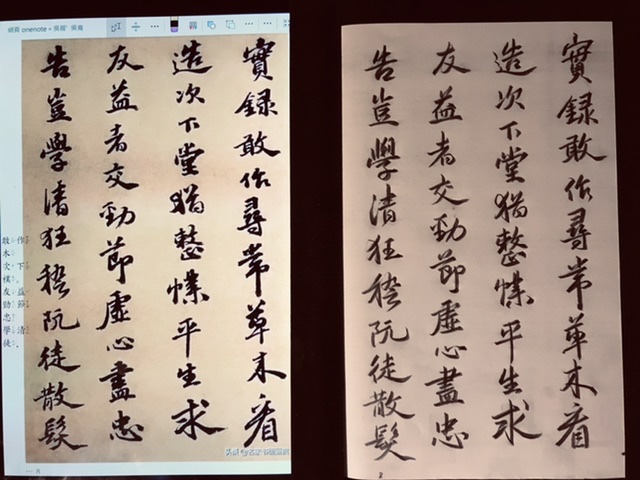 onenote
敢作
木
次下
友益
勁節
忠
學清
徒
實録敢作尋常草木看
造次下堂猶整幞平生求
友益者交勁節虛心盡忠
告豈學清狂嵇阮徒散髮
實録敢作尋常草木看
造次下堂猶整幞平生求
友益者交勁節虛心盡忠
告豈學清狂嵇阮徒散髮